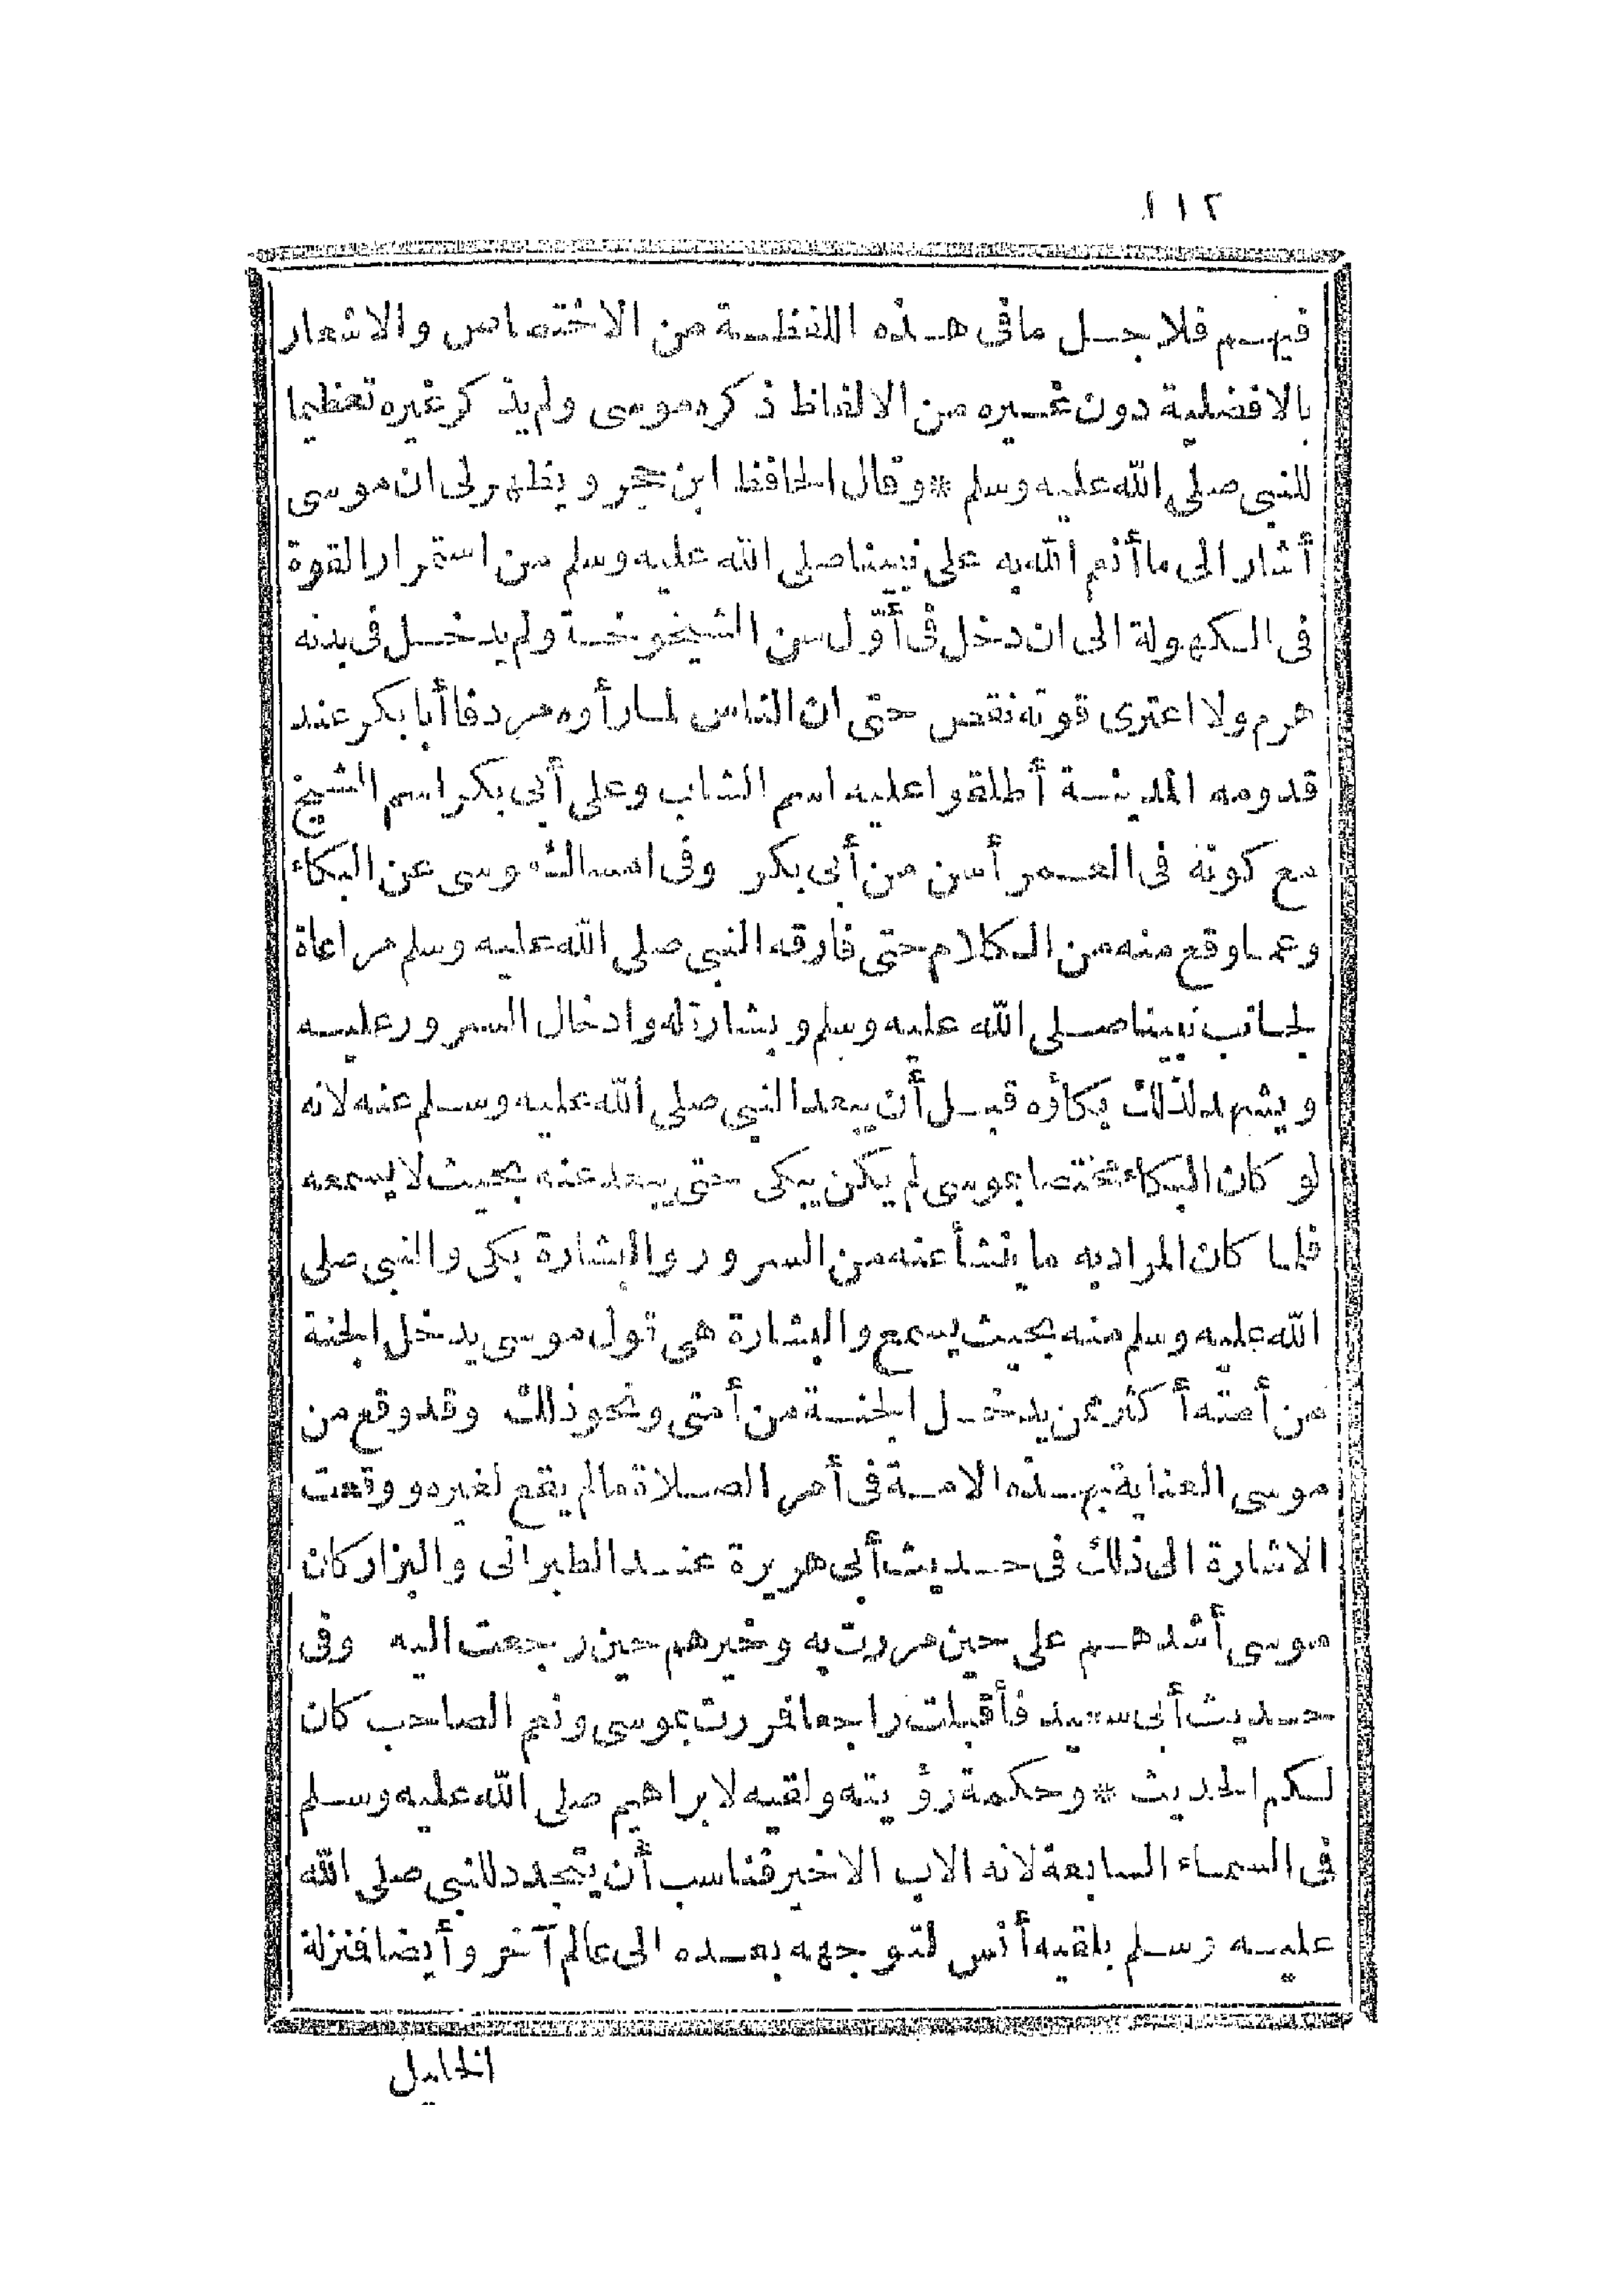 ١١٢
فيهم فلاجل مافى هذه اللفظة من الاختصاص والاشعار
بالافضلية دون غيره من الالفاظ ذكره موسى ولم يذكر غيره تعظيما
للنبى صلى الله عليه وسلم * وقال الحافظ ابن حجر ويظهر لى ان موسى
أشار الى ما أنعم الله به على نبينا صلى الله عليه وسلم من استمرار القوة
فى الكهولة الى ان دخل فى أوّل سن الشيخوخة ولم يدخل فى بدنه
هرم ولا اعترى قوته نقص حتى ان الناس لما رأوه مردفا أبا بكر عند
قدومه المدينة أطلقوا عليه اسم الشاب وعلى أبى بكر اسم الشيخ
مع كونه فى العمر أسن من أبى بكر وفى امساك موسى عن البكاء
وعما وقع منه من الكلام حتى فارقه النبى صلى الله عليه وسلم مراعاة
لجانب نبينا صلى الله عليه وسلم وبشارة له وادخال السرور عليه
ويشهد لذلك بكاؤه قبل أن يبعد النبى صلى الله عليه وسلم عنه لانه
لو كان البكاء مختصا بموسى لم يكن يبكى حتى يبعد عنه بحيث لا يسمعه
فلما كان المراد به ما ينشأ عنه من السرور والبشارة بكى والنبى صلى
الله عليه وسلم منه بحيث يسمع والبشارة هى قول موسى يدخل الجنة
من أمّته أكثر ممن يدخل الجنة من أمتى ونحو ذلك وقد وقع من
موسى العناية بهذه الامة فى أمر الصلاة ما لم يقع لغيره ووقعت
الاشارة الى ذلك فى حديث أبى هريرة عند الطبرانى والبزار كان
موسى أشدهم على حين مررت به وخيرهم حين رجعت اليه وفى
حديث أبى سعيد فأقبلت راجعا فمررت بموسى ونعم الصاحب كان
لكم الحديث * وحكمة رؤيته ولقيه لابراهيم صلى الله عليه وسلم
فى السماء السابعة لانه الاب الاخير فناسب أن يتجدد للنبى صلى الله
عليه وسلم بلقيه أنس لتوجهه بعده الى عالم آخر وأيضا فنزلة
الخليل